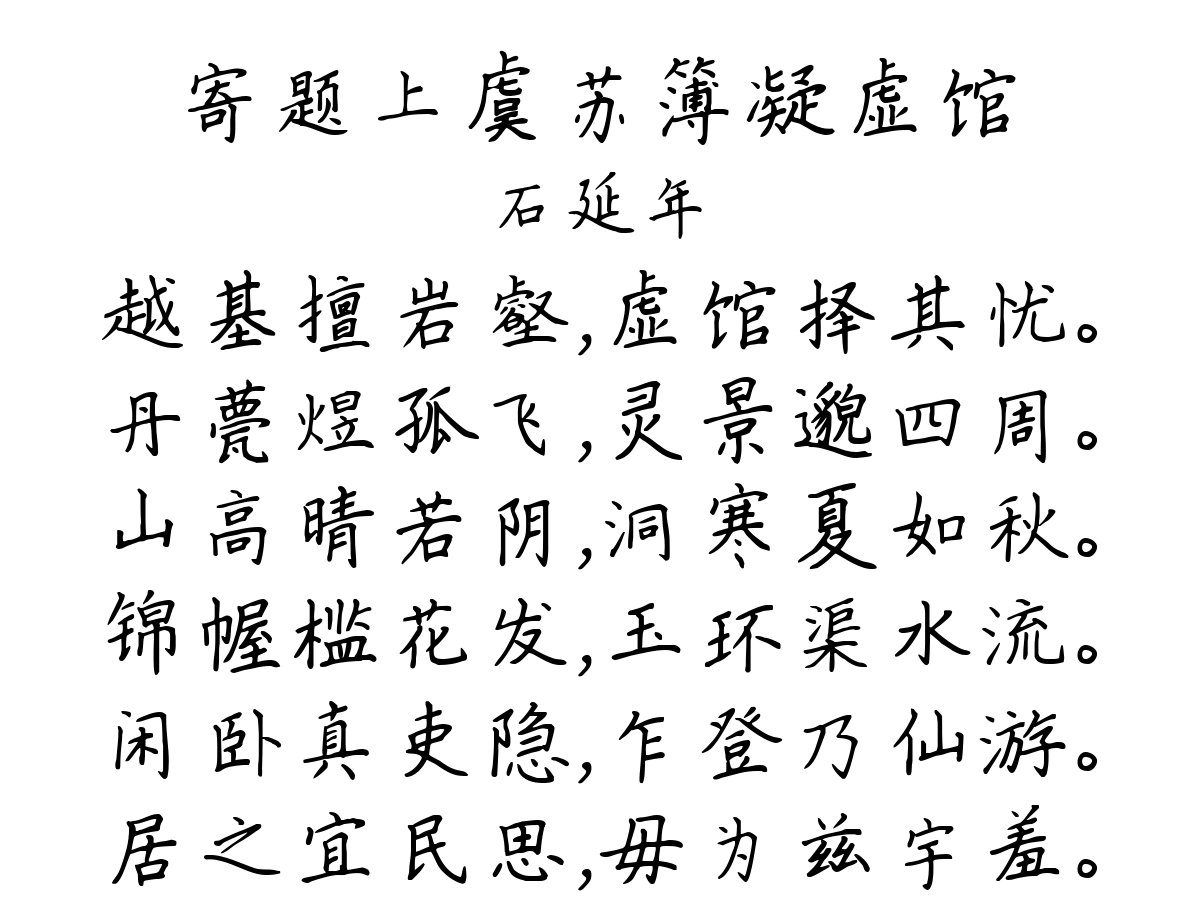 寄题上虞苏簿凝虚馆
石延年
越基擅岩壑,虚馆择其忧。
丹甍煜孤飞,灵景邈四周。
山高晴若阴,洞寒夏如秋。
锦幄槛花发,玉环渠水流。
闲卧真吏隐,乍登乃仙游。
居之宜民思,毋为兹宇羞。